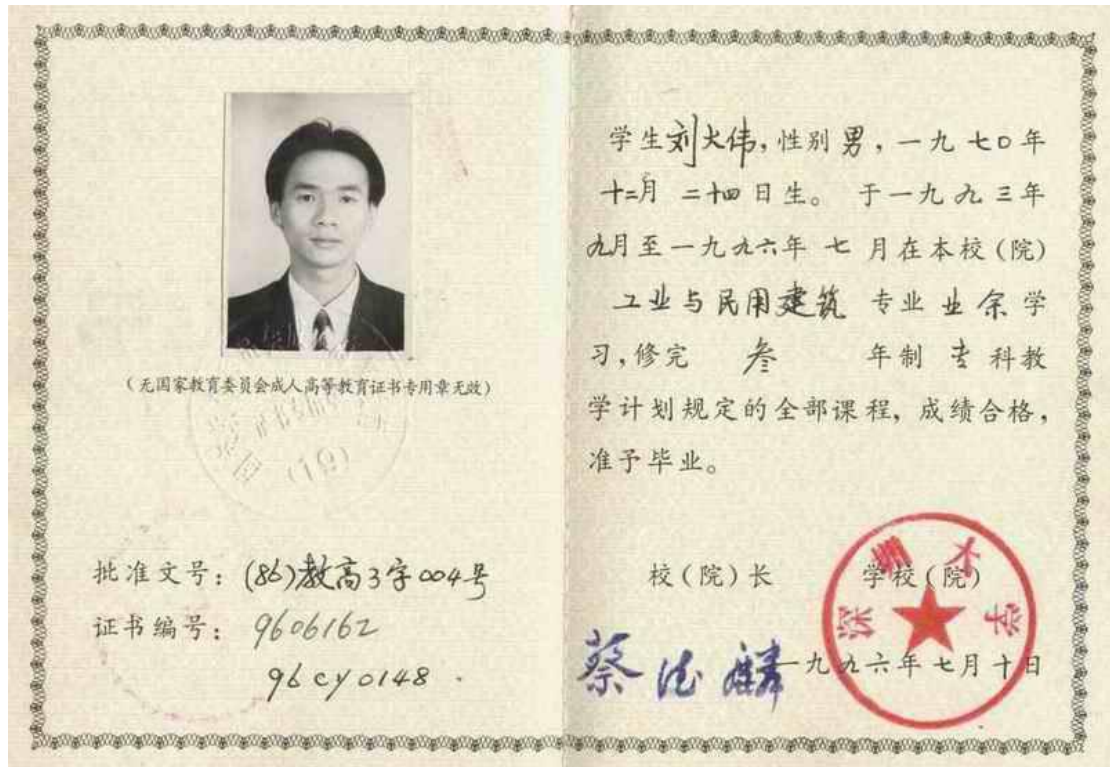 (无国家教育委员会成人高等教育证书专用章无效)
(19)
批准文号：(86)教高3字004号
证书编号：9606162
96cy0148
学生刘大伟，性别男，一九七〇年
十二月二十四日生。于一九九三年
九月至一九九六年七月在本校(院)
工业与民用建筑专业业余学
习，修完叁年制专科教
学计划规定的全部课程，成绩合格，
准予毕业。
校(院)长 学校(院)
深圳大学
蔡德麟
一九九六年七月十日